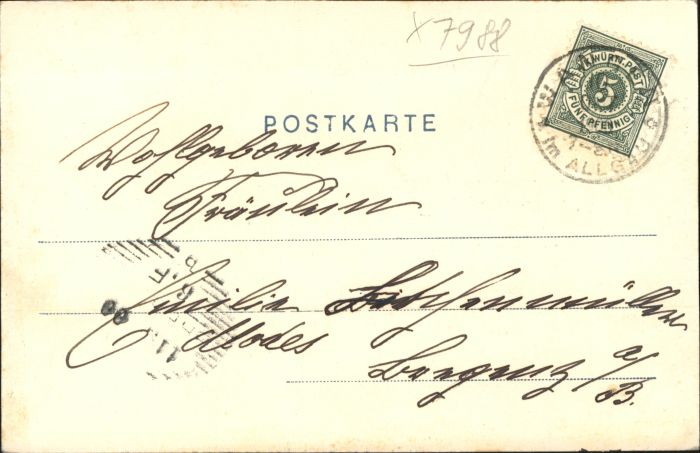 X7988
K. WÜRTT. POST
5
FÜNF PFENNIG
WANGEN
im ALLGÄU
POSTKARTE
Wohlgeboren
Fräulein
Emilie
Modes
Bregenz a/B.